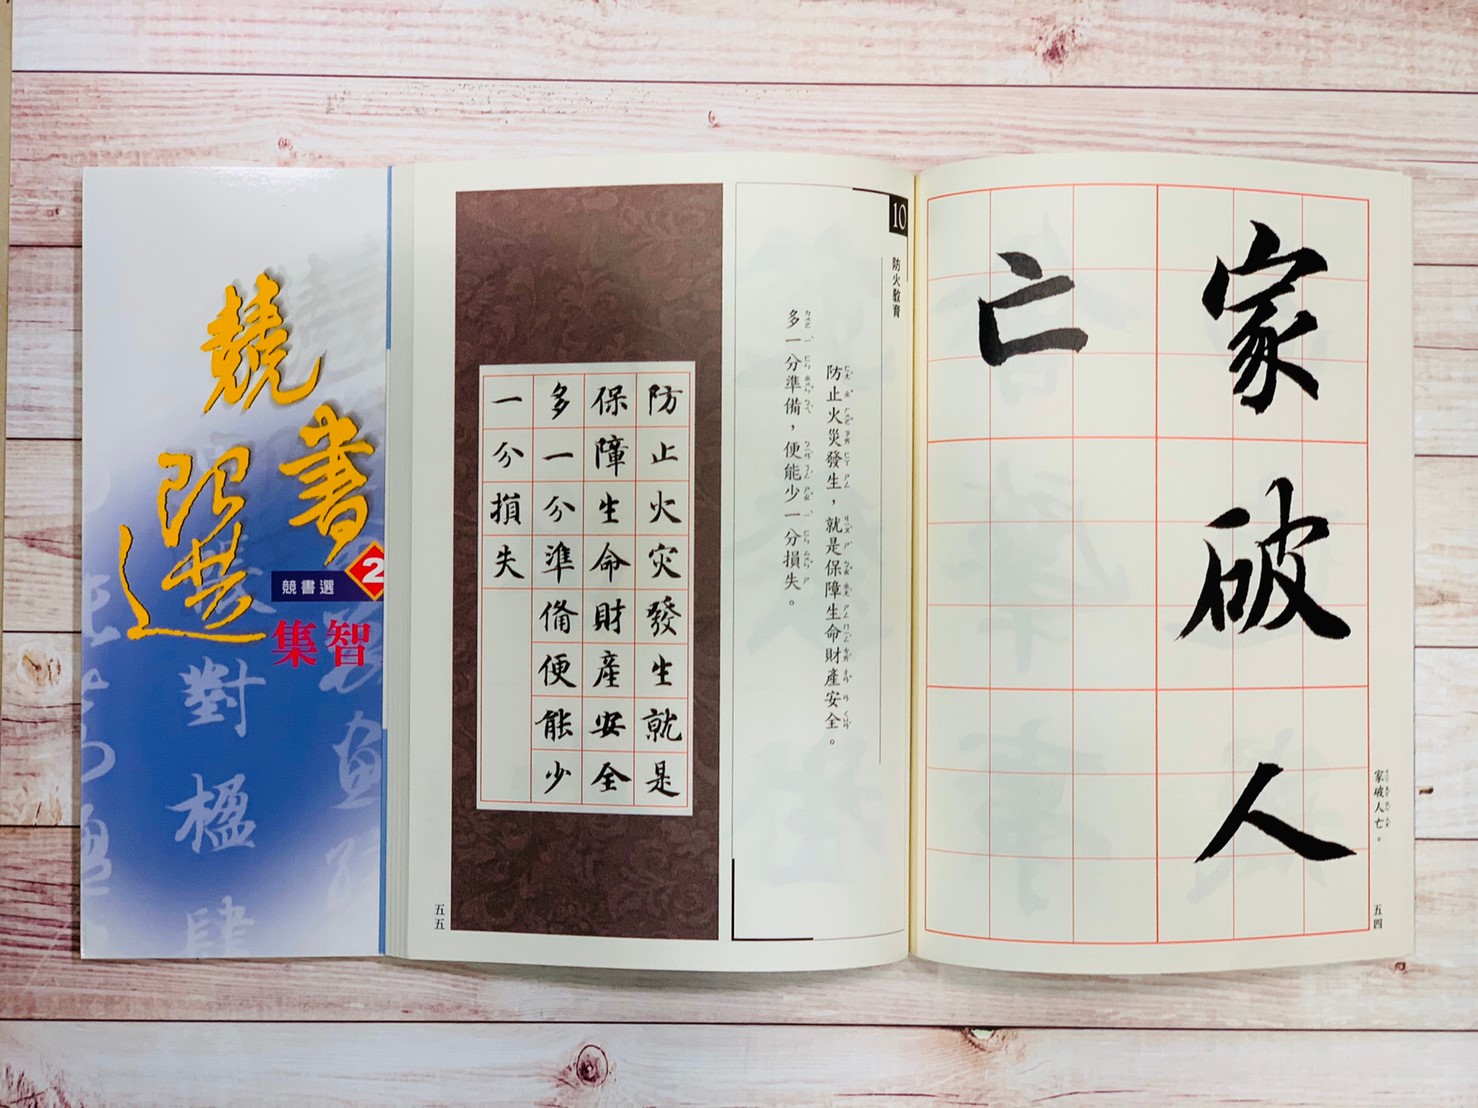 競書選
競書選
2
智集
對楹肆
家破人
亡
家破人亡。
五四
10
防火教育
防止火災發生，就是保障生命財產安全。
多一分準備，便能少一分損失。
防止火灾發生就是
保障生命財產安全
多一分準備便能少
一分損失
五五